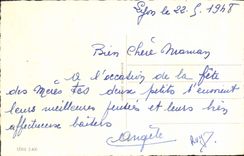 Lyon le 22.5.1948
Bien Chère Maman
A l'occasion de la fête
des Mères tes deux petits t'envoient
leurs meilleures pensées et leurs bien
affectueux baisers
Angèle